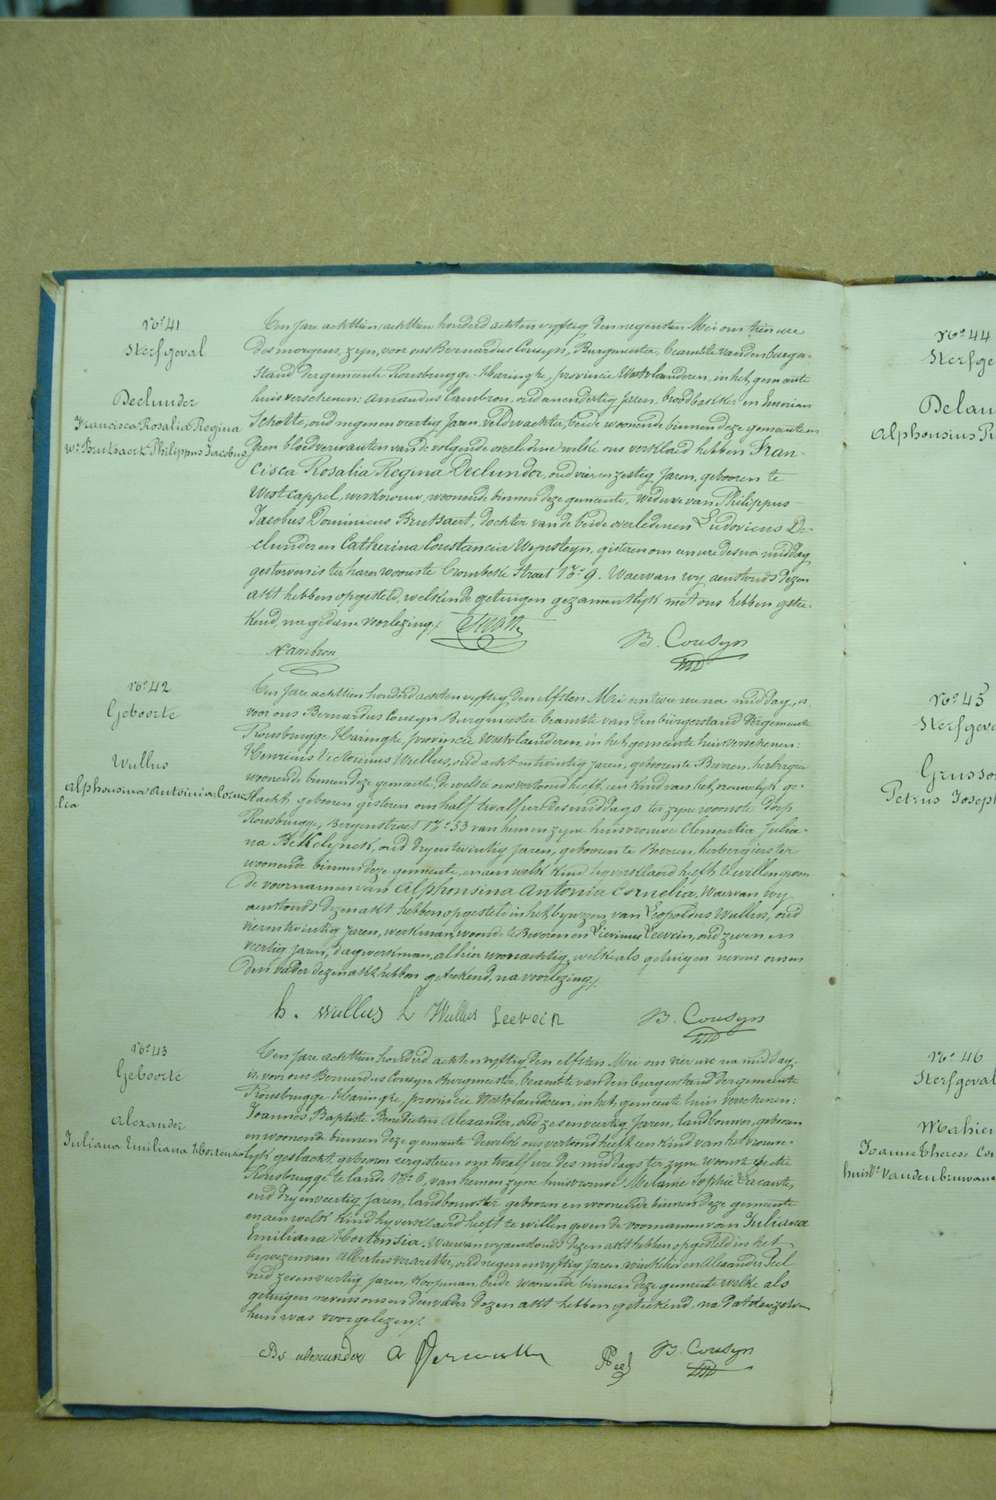 No. 41
Sterfgeval
Declunder
Francisca Rosalia Regina
We. Brutsaert Philippus Jacobus
Ten Jare achttien honderd achtenvyftig den negensten Mei om tien ure
des morgens, zyn, voor ons Bernardus Cousyn, Burgmeester, beambte van den burger-
stand der gemeente Rousbrugge-Haringhe, provincie Westvlanderen, in het gemeente
huis verschenen: Amandus Cambron, oud jaren, broodbakker en
Schotte, oud negenenveertig Jaren, veldwachter, beide woonende binnen deze gemeente en
geen bloedverwanten van de volgende overledene welke ons verklaard hebben Fran-
cisca Rosalia Regina Declunder, oud vierenzestig Jaren, gebooren te
Westcappel, woonende binnen deze gemeente, weduwe van Philippus
Jacobus Dominicus Brutsaert, dochter van de beide overledenen Ludovicus De-
clunder en Catherina Constancia Wynsteyn, gisteren om een ure des na middag
gestorven is ter haren woonste Crombeke Straet No. 9. Waervan wy aenstonds dezen
akt hebben opgesteld, welken de getuigen gezamentlyk met ons hebben getee-
kend, na gedane voorlezing.
Schotte
B. Cousyn
A Cambron
No. 42
Geboorte
Wullus
Alphonsina Antonia Corne
lia
Ten Jare achttien honderd achtenvyftig, den elfsten Mei om twee ure na middag, is
voor ons Bernardus Cousyn Burgmeester beambte van den burgerstand der gemeente
Rousbrugge-Haringhe, provincie Westvlaanderen, in het gemeente huis verschenen:
Henricus Victorinus Wullus, oud acht en twintig jaren, geboren te Beveren, herbergier
woonende binnen deze gemeente de welke ons vertoond heeft een kind van het vrouwelyk ge-
slacht, geboren gisteren om half twaelf ure des middags ter zyne woonste dorp
Rousbrugge, Bergenstraet No. 53 van hem en zyne huisvrouwe Clementia Julia-
na Bekelynck, oud dryentwintig jaren, gebooren te Beveren, herbergierster
woonende binnen deze gemeente, en aen welk kind hy verklaard heeft te willen geven
de voornamen van Alphonsina Antonia Cornelia, Waervan wy
aenstonds dezen akt hebben opgesteld in het bywezen van Leopoldus Wullus, oud
vierentwintig jaren, werkman, woonende te Beveren en Livinus Leevein, oud zeven en
veertig jaren, dagwerkman, alhier woonachtig, welke als getuigen nevens ons en
den vader dezen akt hebben geteekend, na voorlezing.
h. Wullus L Wullus Leevein
B. Cousyn
No. 43
Geboorte
Alexander
Juliana Emiliana Hortensia
Ten Jare achttien honderd achtenvyftig den elfsten Mei om vier ure na middag,
is, voor ons Bernardus Cousyn Burgmeester, beambte van den burgerstand der gemeente
Rousbrugge-Haringhe, provincie Westvlaanderen, in het gemeente huis verschenen:
Joannes Baptiste Benedictus Alexander, oud zes en veertig Jaren, landbouwer, gebooren
en woonende binnen deze gemeente dewelke ons vertoond heeft een kind van het vrouwe-
lyk geslacht, gebooren eergisteren om twaelf ure des middags ter zyne woonste sectie
Rousbrugge te lande No. 6, van hem en zyne huisvrouwe Melanie Sophie Lacante,
oud dryenveertig Jaren, landbouwster, gebooren en woonende binnen deze gemeente
en aen welk kind hy verklaard heeft te willen geven de voornamen van Juliana
Emiliana Hortensia. Waervan wy aenstonds dezen akt hebben opgesteld in het
bywezen van Albertus oud negen en vyftig Jaren, en Alexander Peel
oud zesenveertig Jaren, koopman, beide woonende binnen deze gemeente welke als
getuigen nevens ons en den vader dezen akt hebben geteekend, na dat deze aen
hun was voorgelezen.
Be alexander
A
Peel
B. Cousyn
No. 44
Sterfge
Delau
Alphonsius
No. 45
Sterfgeva
Grusso
Petrus Joseph
No. 46
Sterfgeval
Mahieu
Joanna Therese
huisv. Vandenbruwane